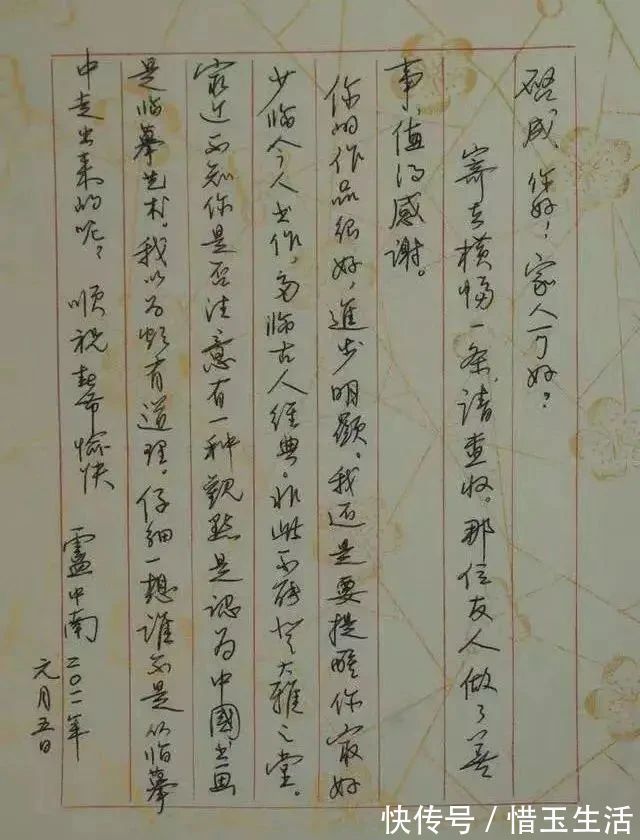 启成 你好！家人可好？
寄去横幅一条，请查收。那位友人做了善
事，值得感谢。
你的作品很好，進步明顯。我还是要提醒你最好
少临今人书作，多临古人经典。非此不能登大雅之堂。
最近不知你是否注意有一种觀點是认为中國书画
是临摹艺术。我以为颇有道理。仔细一想谁不是从临摹
中走出来的呢？ 顺祝春节愉快 盧中南 二〇一一年
元月五日
快传号 / 惜玉生活